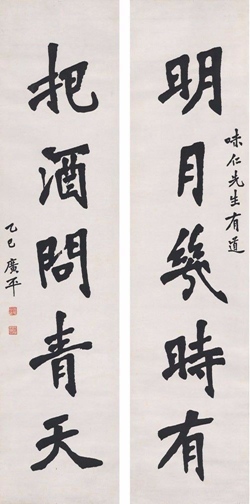 味仁先生有道
明月幾時有
把酒問青天
乙巳廣平